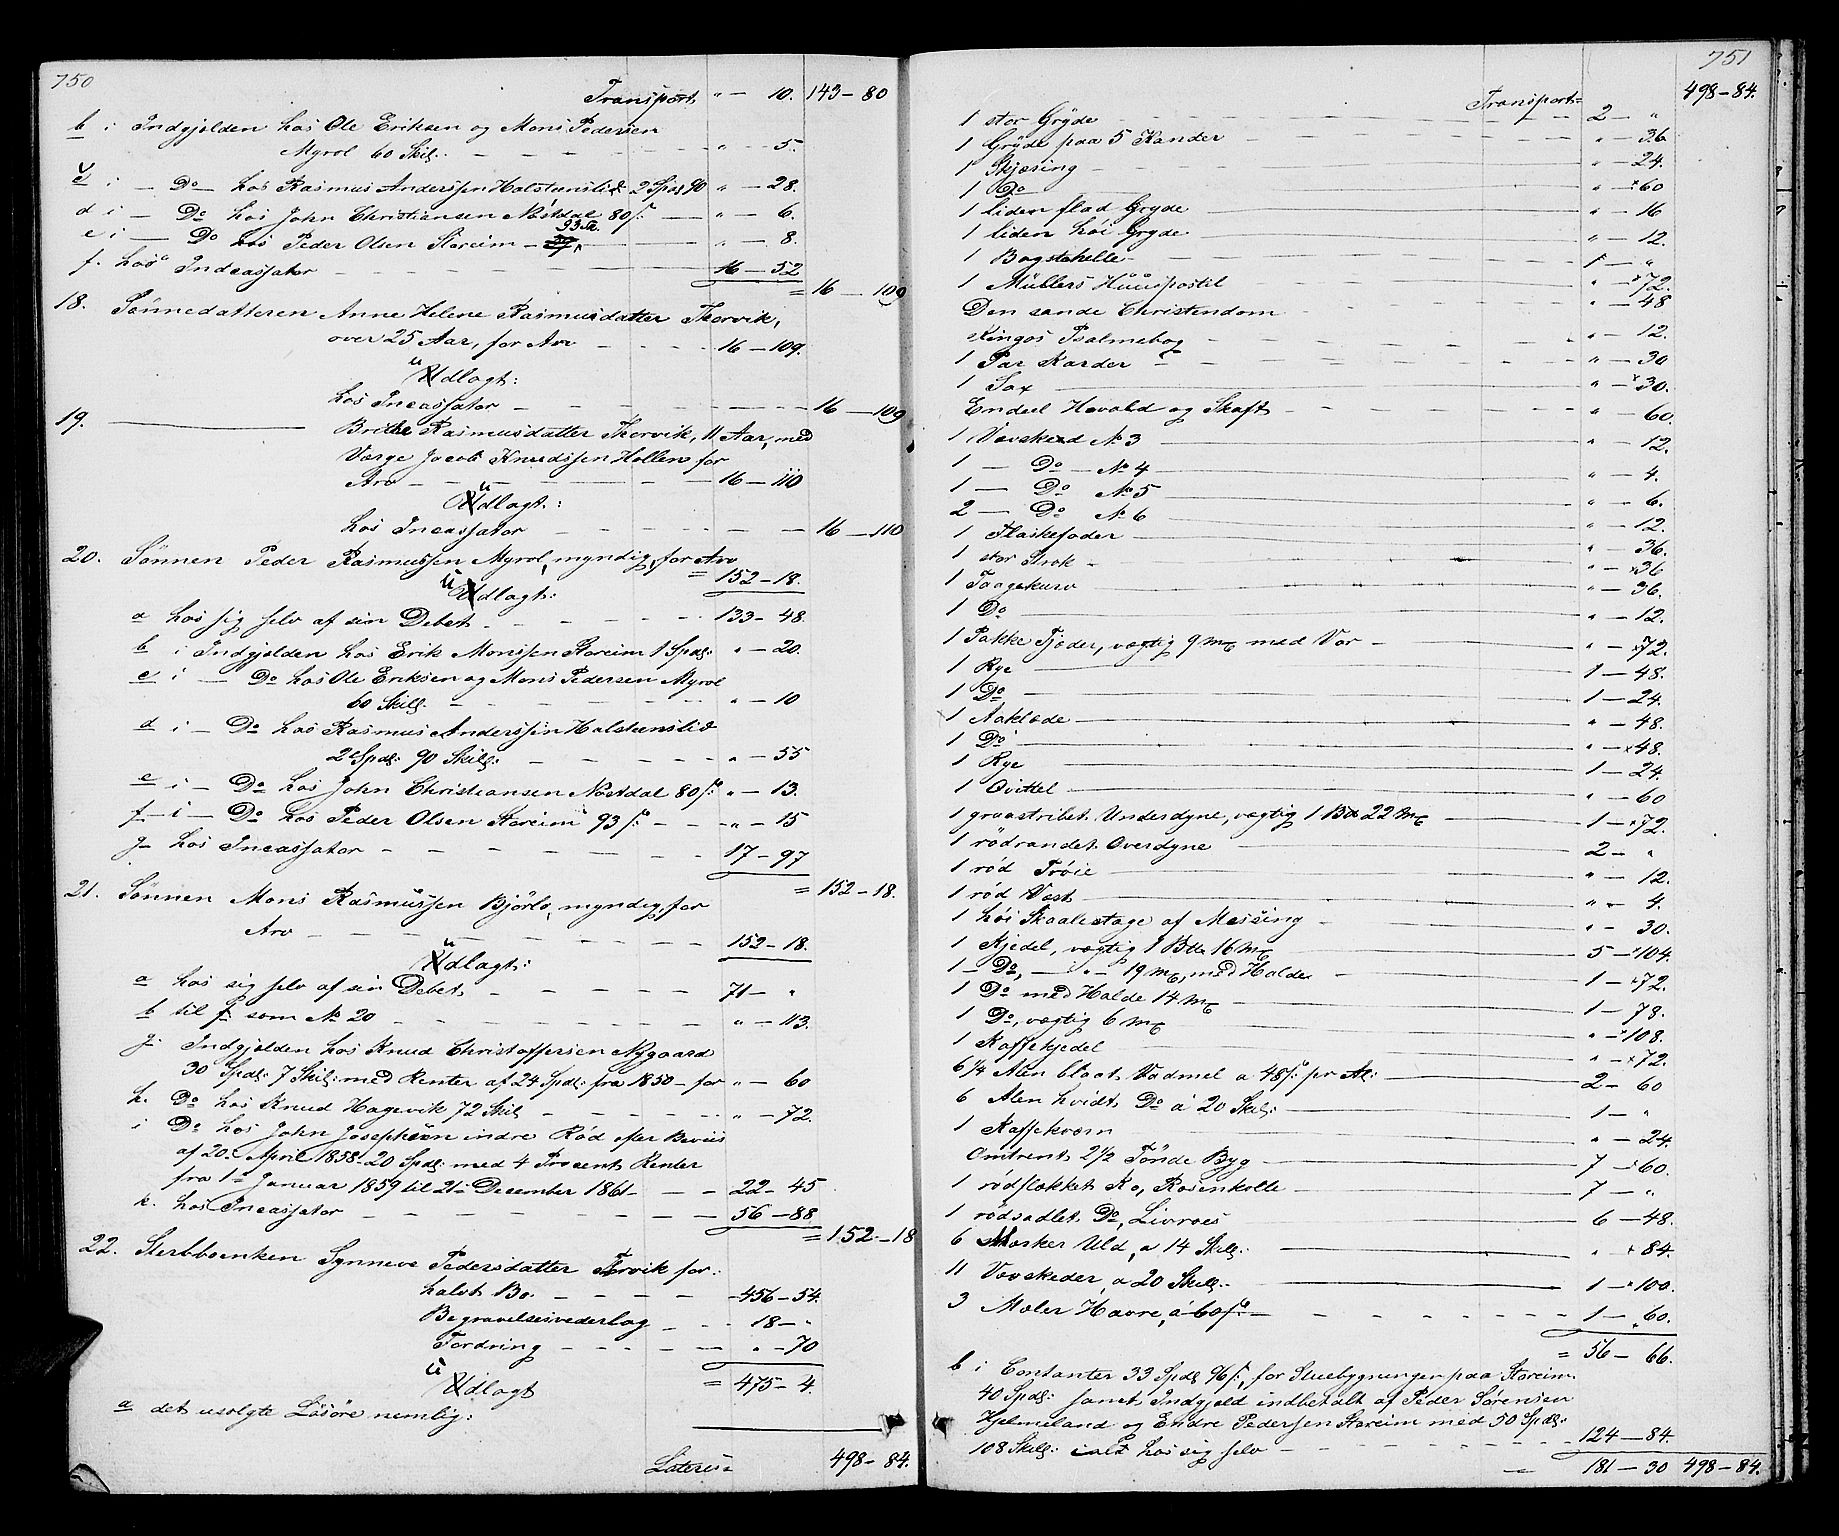 750
Transport " - 10. 143 - 80
b i Indgjølden hos Ole Eriksen og Mons Pedersen
Myrol 60 Skil: " - 5.
c i - Do - hos Rasmus Anderssen Halsteenslid 2 Spd 90 " - 28.
d i - Do hos John Christiansen Nøstdal 80 s: " - 6.
93 s:
e i - Do hos Peder Olsen Storeim " - 8.
f. hos Incassator 16 - 52
= 16 - 109
18. Sønnedatteren Anne Helene Rasmusdatter Thorvik,
over 25 Aar, for Arv 16 - 109.
Udlagt:
hos Incassator 16 - 109
19. Brithe Rasmusdatter Thorvik, 11 Aar, med
Værge Jacob Knudssen Hollen for
Arv 16 - 110
Udlagt:
hos Incassator 16 - 110
20. Sønnen Peder Rasmussen Myrol, myndig, for Arv
= 152 - 18.
Udlagt:
a hos sig selv af sin Debet 133 - 48.
b i Indgjølden hos Erik Monssen Storeim 1 Spd: " - 20.
c i - Do hos Ole Eriksen og Mons Pedersen Myrol
60 Skill: " - 10
d i - Do hos Rasmus Anderssen Halsteenslid
2 Spd: 90 Skill: " - 55
e i - Do hos John Christiansen Nøstdal 80 s: " - 13.
f i - Do hos Peder Olsen Storeim 93 s: " - 15
g hos Incassator 17 - 97
= 152 - 18.
21. Sønnen Mons Rasmussen Bjørlo, myndig, for
Arv 152 - 18.
Udlagt:
a hos sig selv af sin Debet 71 - "
b til f. som No 20 " - 113.
g. Indgjølden hos Knud Christoffersen Nygaard
30 Spd: 7 Skil: med Renter af 24 Spd: fra 1850 - for " - 60
h. Do hos Knud Hagevik 72 Skil " - 72.
i Do hos John Josephsen indre Rød efter Beviis
af 20. April 1858 - 20 Spd: med 4 Procent Renter
fra 1. Januar 1859 til 21. December 1861 - 22 - 45
k. hos Incassator 56 - 88
= 152 - 18
22. Sterbboenken Synneve Pedersdatter Torvik for:
halvt Bo. 456 - 54.
Begravelsesvederlag 18 - "
Fordring " - 70
= 475 - 4.
Udlagt
a det usolgte Løsøre nemlig:
Lateris 498 - 84.
751
Transport 498 - 84.
1 stor Gryde 2 - "
1 Gryde paa 5 Kander " - 36
1 Skjæsing " - 24.
1 Do " - x60
1 liden flad Gryde " - 16
1 liden høi Gryde " - 12.
1 Bagstehelle 1 - "
1 Müllers Huuspostil " - x72.
Den sande Christendom " - 48
Kingos Psalmebog " - 12.
1 Par Karder " - 30
1 Sax " - x30.
Endeel Hovold og Skaft " - 60.
1 Vævskeed No 3 " - 12.
1 - Do - No 4 " - 4.
1 - Do No 5 " - 6.
2 - Do No 6 " - 12.
1 Flaskefoder " - 36.
1 stor Strok " - x36
1 Taagekurv " - 36.
1 Do " - 12.
1 Pakke Fjeder, vægtig 9 mk med Vor " - x72.
1 Rye 1 - 48.
1 Do 1 - 24.
1 Aaklæde " - 48.
1 Do " - x48.
1 Rye 1 - 24.
1 Qvittel " - 60
1 graastribet Underdyne, vægtig 1 B 22 mk 1 - x72.
1 rødrandet Overdyne 2 - "
1 rød Trøie " - 12.
1 rød Vest " - 4.
1 høi Skaalestage af Messing " - 30.
1 Kjedel, vægtig 1 B 16 mk 5 - x104.
1 - Do, - " - 19 mk, med Halde 1 - x72.
1 Do med Halde 14 mk 1 - 78.
1 Do, vægtig 6 mk " - x108.
1 Kaffekjedel " - x72.
6 1/4 Alen blaat Vadmel a 48 s: pr Al: 2 - 60
6 Alen hvidt Do a 20 Skil: 1 - "
1 Kaffekværn " - 24.
Omtrent 2 1/2 Tønde Byg 7 - 60.
1 rødflekket Ko, Rosenkolle 7 - "
1 rødsadlet Do, Livroes 6 - 48.
6 Marker Uld, a 14 Skill: " - x84.
11 Vævskeder, a 20 Skill: 1 - x100.
3 Mæler Havre, a 60 s: 1 - 60.
= 56 - 66.
b i Contanter 33 Spd 96 s:, for Stuebygningen paa Storeim
40 Spd: samt Indgjeld indbetalt af Peder Sørensen
Hjelmeland og Endre Pedersen Storeim med 50 Spd:
108 Skill: ialt hos sig selv 124 - 84.
181 - 30 498 - 84.